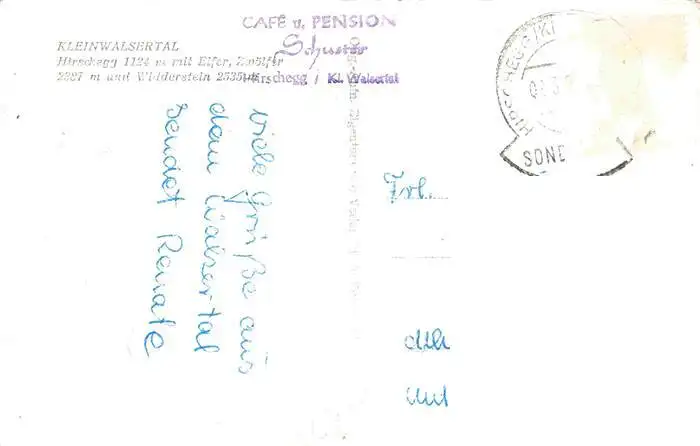 CAFÉ u. PENSION
Schuster
Hirschegg / Kl. Walsertal
KLEINWALSERTAL
Hirschegg 1124 m mit Elfer, Zwölfer
2387 m und Widderstein 2535 m
HIRSCHEGG/KL
SONDE
viele Grüße aus
dem Walsertal
sendet Renate
Frl.